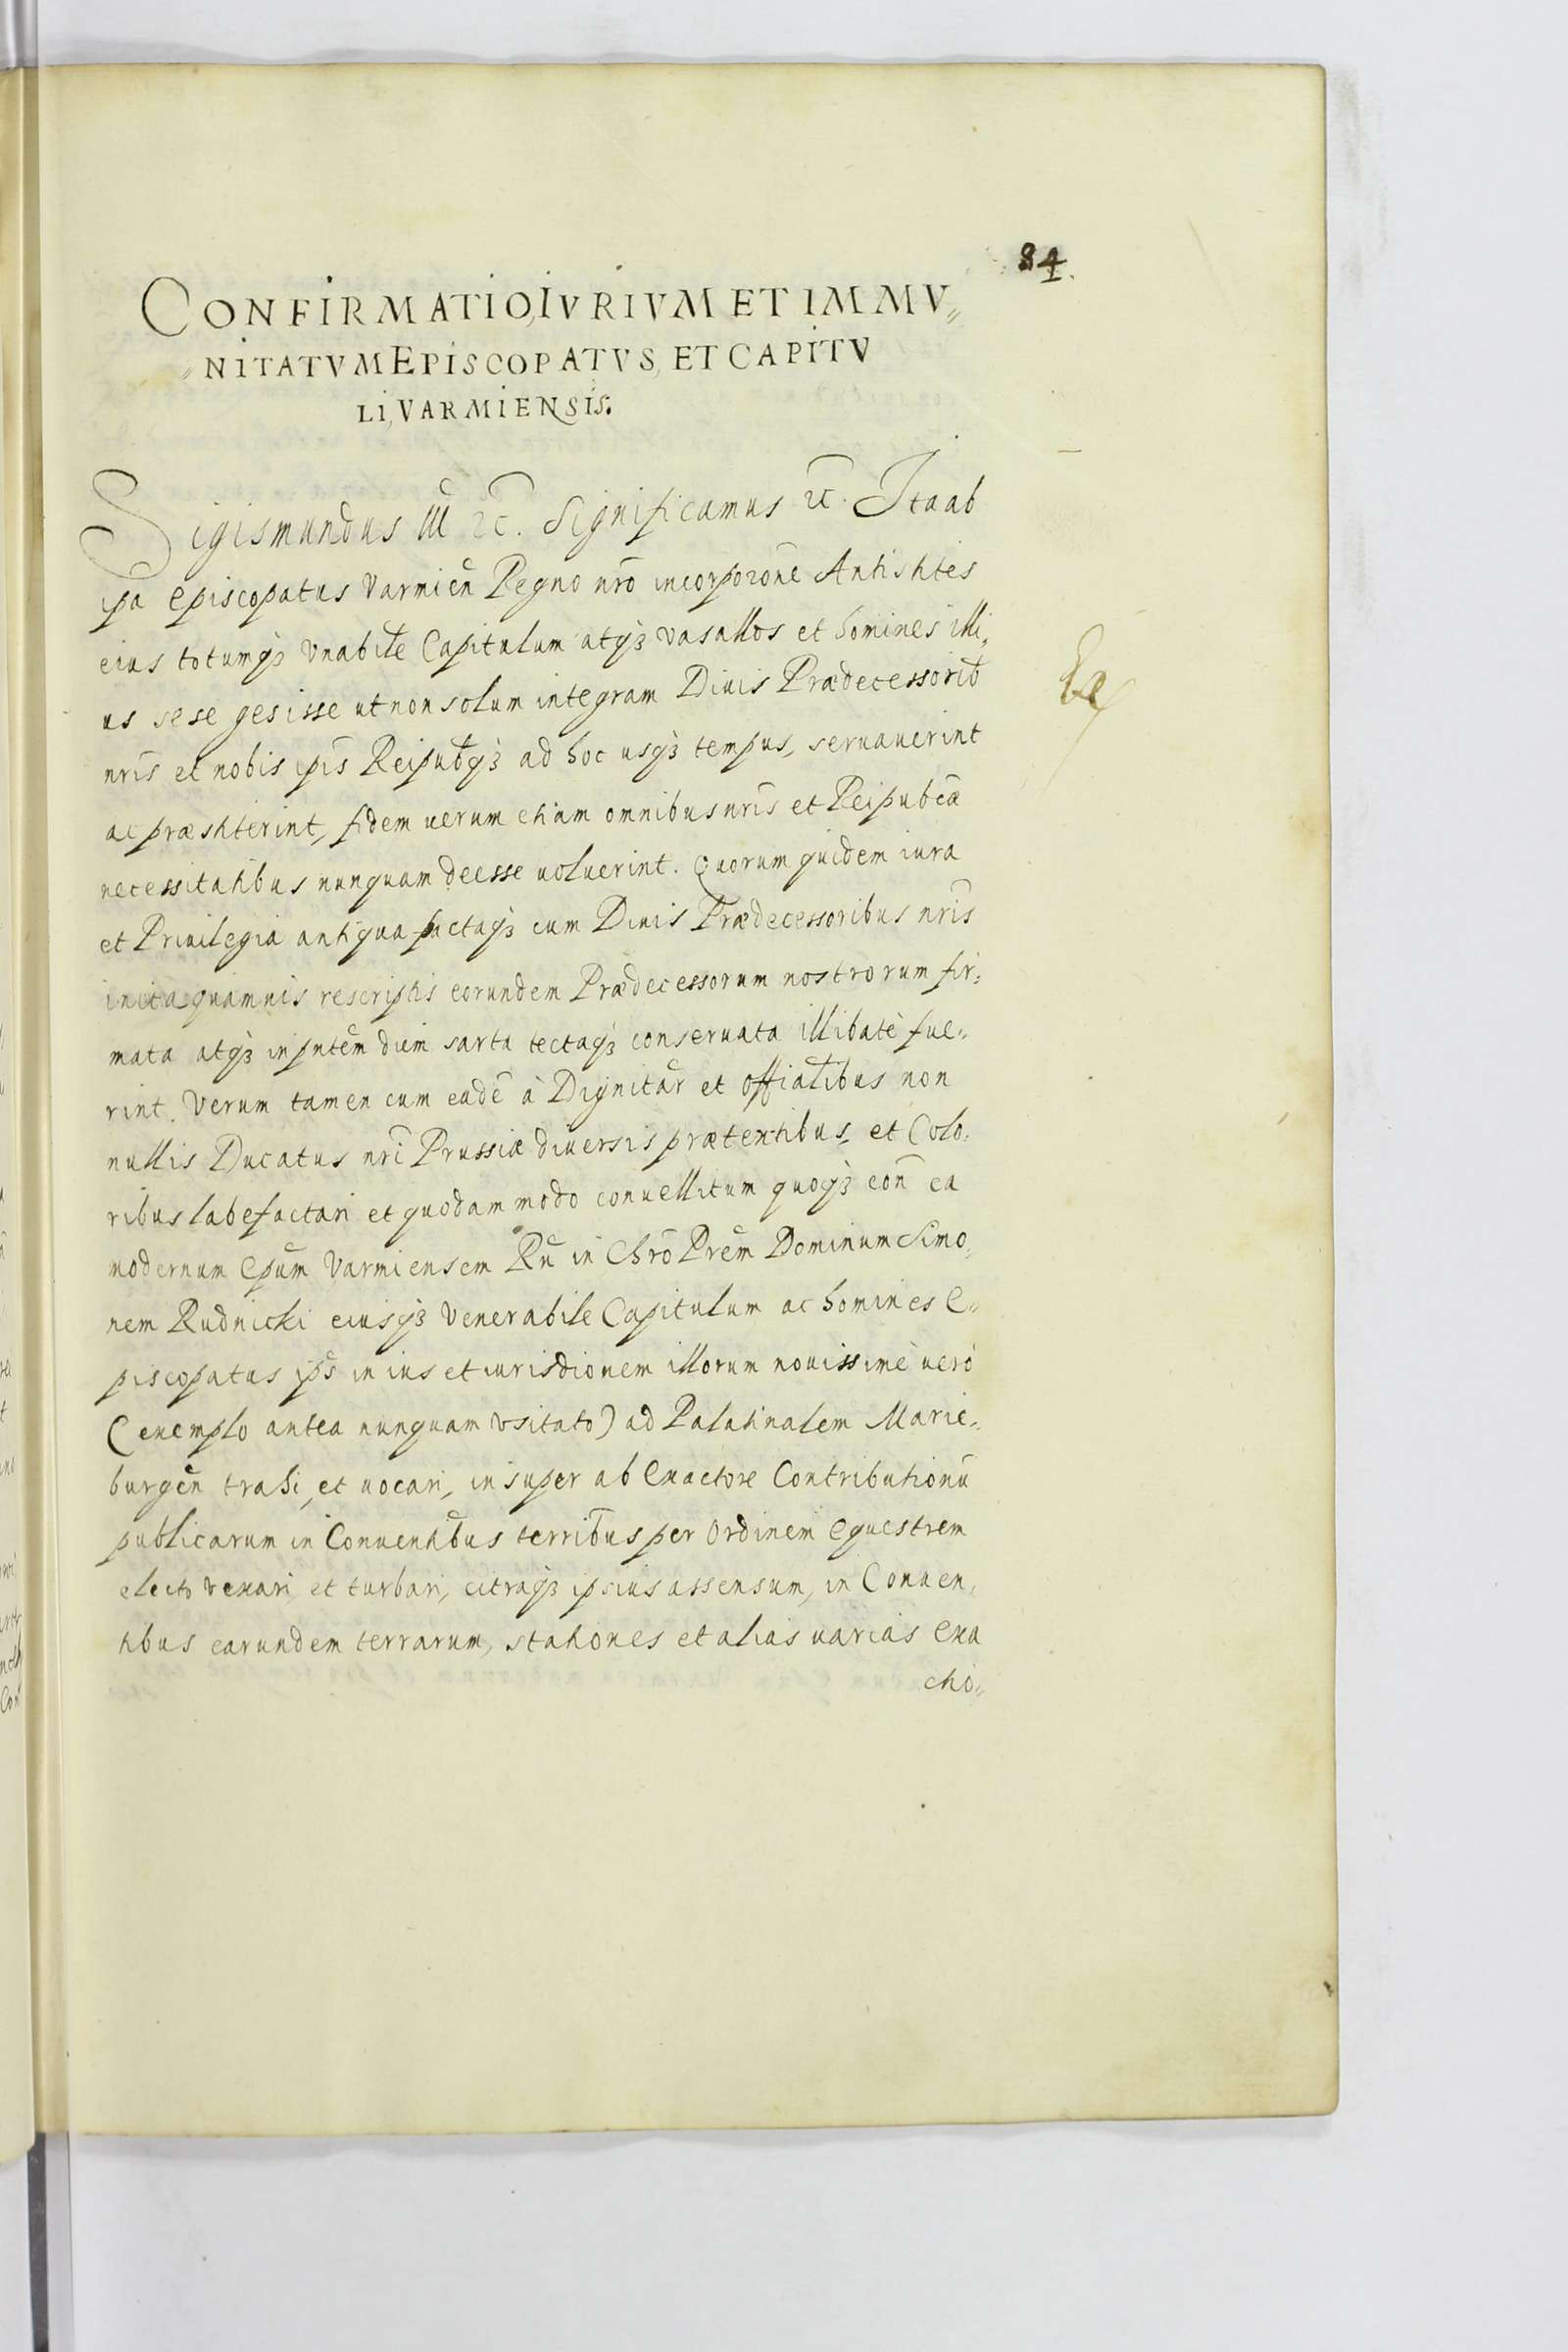 84.
CONFIRMATIO, IVRIVM ET IMMV„
„NITATVM EPISCOPATVS, ET CAPITV
LI, VARMIENSIS.
Sigismundus III ꝛc̃. Significamus ꝛc̃. Ita ab
ipa Episcopatus Varmien̄ Regno nr̄o incorporōne Antistites
eius totumqȝ Vnabile Capitulum atqȝ vasallos et homines illi„
us sese gesisse ut non solum integram Diuis Prædecessorib̄
nrīs et nobis ipīs Reipub̄qȝ ad hoc usqȝ tempus, seruauerint
ac præstiterint, fidem uerum etiam omnibus nrīs et Reipubcā
necessitatibus nunquam deesse uoluerint. Quorum quidem iura
et Priuilegia antiqua pactaqȝ cum Diuis Prædecessoribus nrīs
inita quamuis rescriptis eorundem Prædecessorum nostrorum fir„
mata atqȝ in pntēm diem sarta tectaqȝ conseruata illibatè fue„
rint. Verum tamen cum eadē à Dignitār et offialibus non
nullis Ducatus nrī Prussiæ diuersis prætextibus, et Colo„
ribus labefactari et quodam modo conuelli tum quoqȝ con̄ ea
modernum Epūm Varmiensem Rn̄ in Chrō Prēm Dominum Simo„
nem Rudnicki eiusqȝ Venerabile Capitulum ac homines E„
piscopatus ips̄ in ius et iurisdionem illorum nouissimè uerò
(exemplo antea nunquam vsitato) ad Palatinalem Marie„
burgēn trahi, et uocari, insuper ab Exactore Contributionū
publicarum in Conuentibus terribus per Ordinem Equestrem
electo vexari, et turbari, citraqȝ ipsius assensum, in Conuen„
tibus earundem terrarum, stationes et alias uarias Exa
ctio„